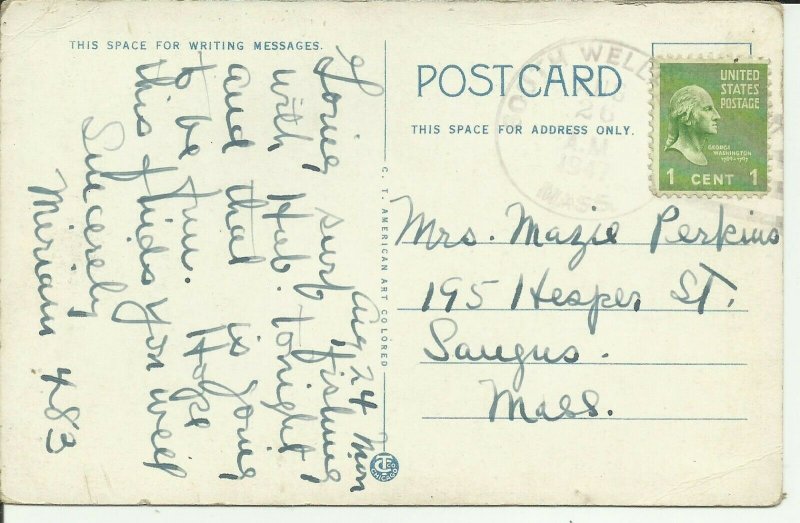 THIS SPACE FOR WRITING MESSAGES.
Aug 24 Mon
Going surf fishing
with Hub. tonight,
and that is going
to be fun. Hope
this finds you well
Sincerely
Miriam 483
C. T. AMERICAN ART COLORED
CT CO
CHICAGO
POSTCARD
THIS SPACE FOR ADDRESS ONLY.
SOUTH WELL
26
A.M
MASS.
UNITED
STATES
POSTAGE
GEORGE
WASHINGTON
1789-1797
1 CENT 1
Mrs. Mazie Perkins
195 Hesper St.
Saugus.
Mass.